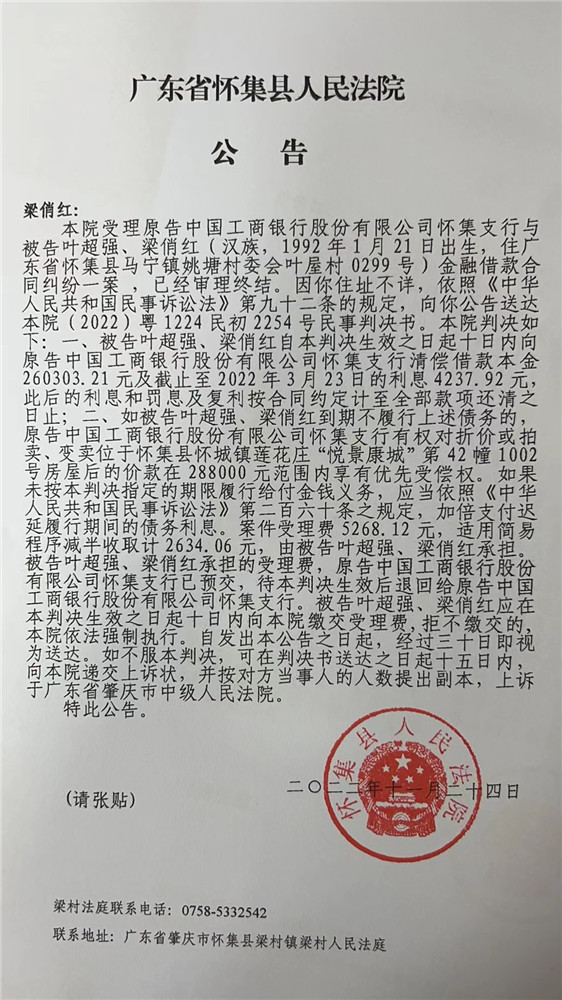 广东省怀集县人民法院
公 告
梁俏红:
本院受理原告中国工商银行股份有限公司怀集支行与
被告叶超强、梁俏红(汉族,1992年1月21日出生,住广
东省怀集县马宁镇姚塘村委会叶屋村0299号)金融借款合
同纠纷一案,已经审理终结。因你住址不详,依照《中华
人民共和国民事诉讼法》第九十二条的规定,向你公告送达
本院(2022)粤1224民初2254号民事判决书。本院判决如
下:一、被告叶超强、梁俏红自本判决生效之日起十日内向
原告中国工商银行股份有限公司怀集支行清偿借款本金
260303.21元及截止至2022年3月23日的利息4237.92元,
此后的利息和罚息及复利按合同约定计至全部款项还清之
日止;二、如被告叶超强、梁俏红到期不履行上述债务的,
原告中国工商银行股份有限公司怀集支行有权对折价或拍
卖、变卖位于怀集县怀城镇莲花庄“悦景康城”第42幢1002
号房屋后的价款在288000元范围内享有优先受偿权。如果
未按本判决指定的期限履行给付金钱义务,应当依照《中华
人民共和国民事诉讼法》第二百六十条之规定,加倍支付迟
延履行期间的债务利息。案件受理费5268.12元,适用简易
程序减半收取计2634.06元,由被告叶超强、梁俏红承担。
被告叶超强、梁俏红承担的受理费,原告中国工商银行股份
有限公司怀集支行已预交,待本判决生效后退回给原告中国
工商银行股份有限公司怀集支行。被告叶超强、梁俏红应在
本判决生效之日起十日内向本院缴交受理费,拒不缴交的,
本院依法强制执行。自发出本公告之日起,经过三十日即视
为送达。如不服本判决,可在判决书送达之日起十五日内,
向本院递交上诉状,并按对方当事人的人数提出副本,上诉
于广东省肇庆市中级人民法院。
特此公告。
二〇二二年十一月二十四日
怀集县人民法院
(请张贴)
梁村法庭联系电话:0758-5332542
联系地址:广东省肇庆市怀集县梁村镇梁村人民法庭